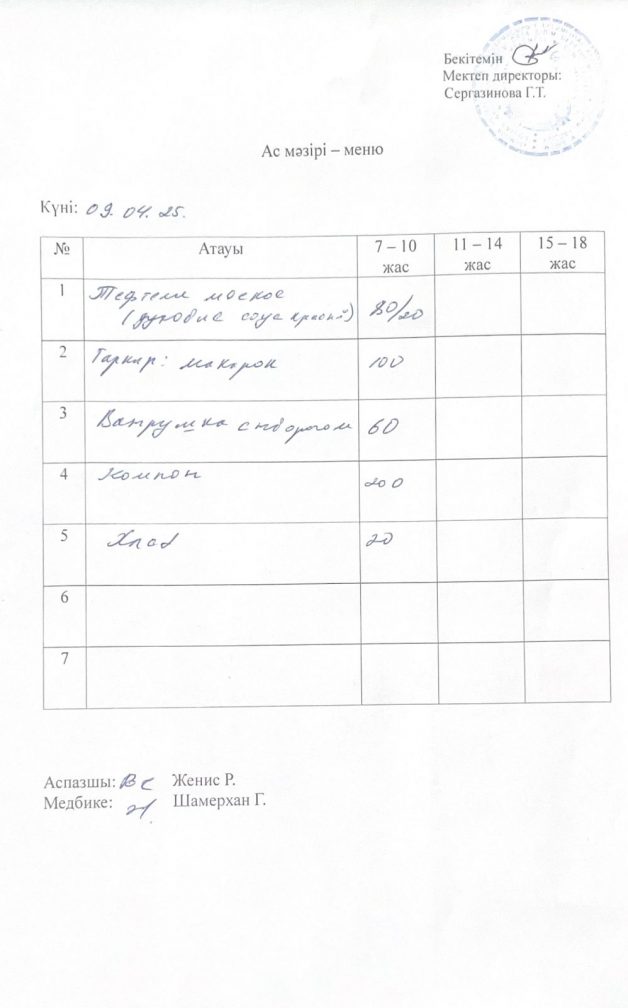 Бекітемін
Мектеп директоры:
Сергазинова Г.Т.
Ас мәзірі – меню
Күні: 09. 04. 25.
№ Атауы 7 – 10 жас 11 – 14 жас 15 – 18 жас
1 Тефтели мясное
( соус красный) 80/20
2 Гарнир: макарон 100
3 Ватрушка с творогом 60
4 Компот 200
5 Хлеб 20
6
7
Аспазшы: Женис Р.
Медбике: Шамерхан Г.